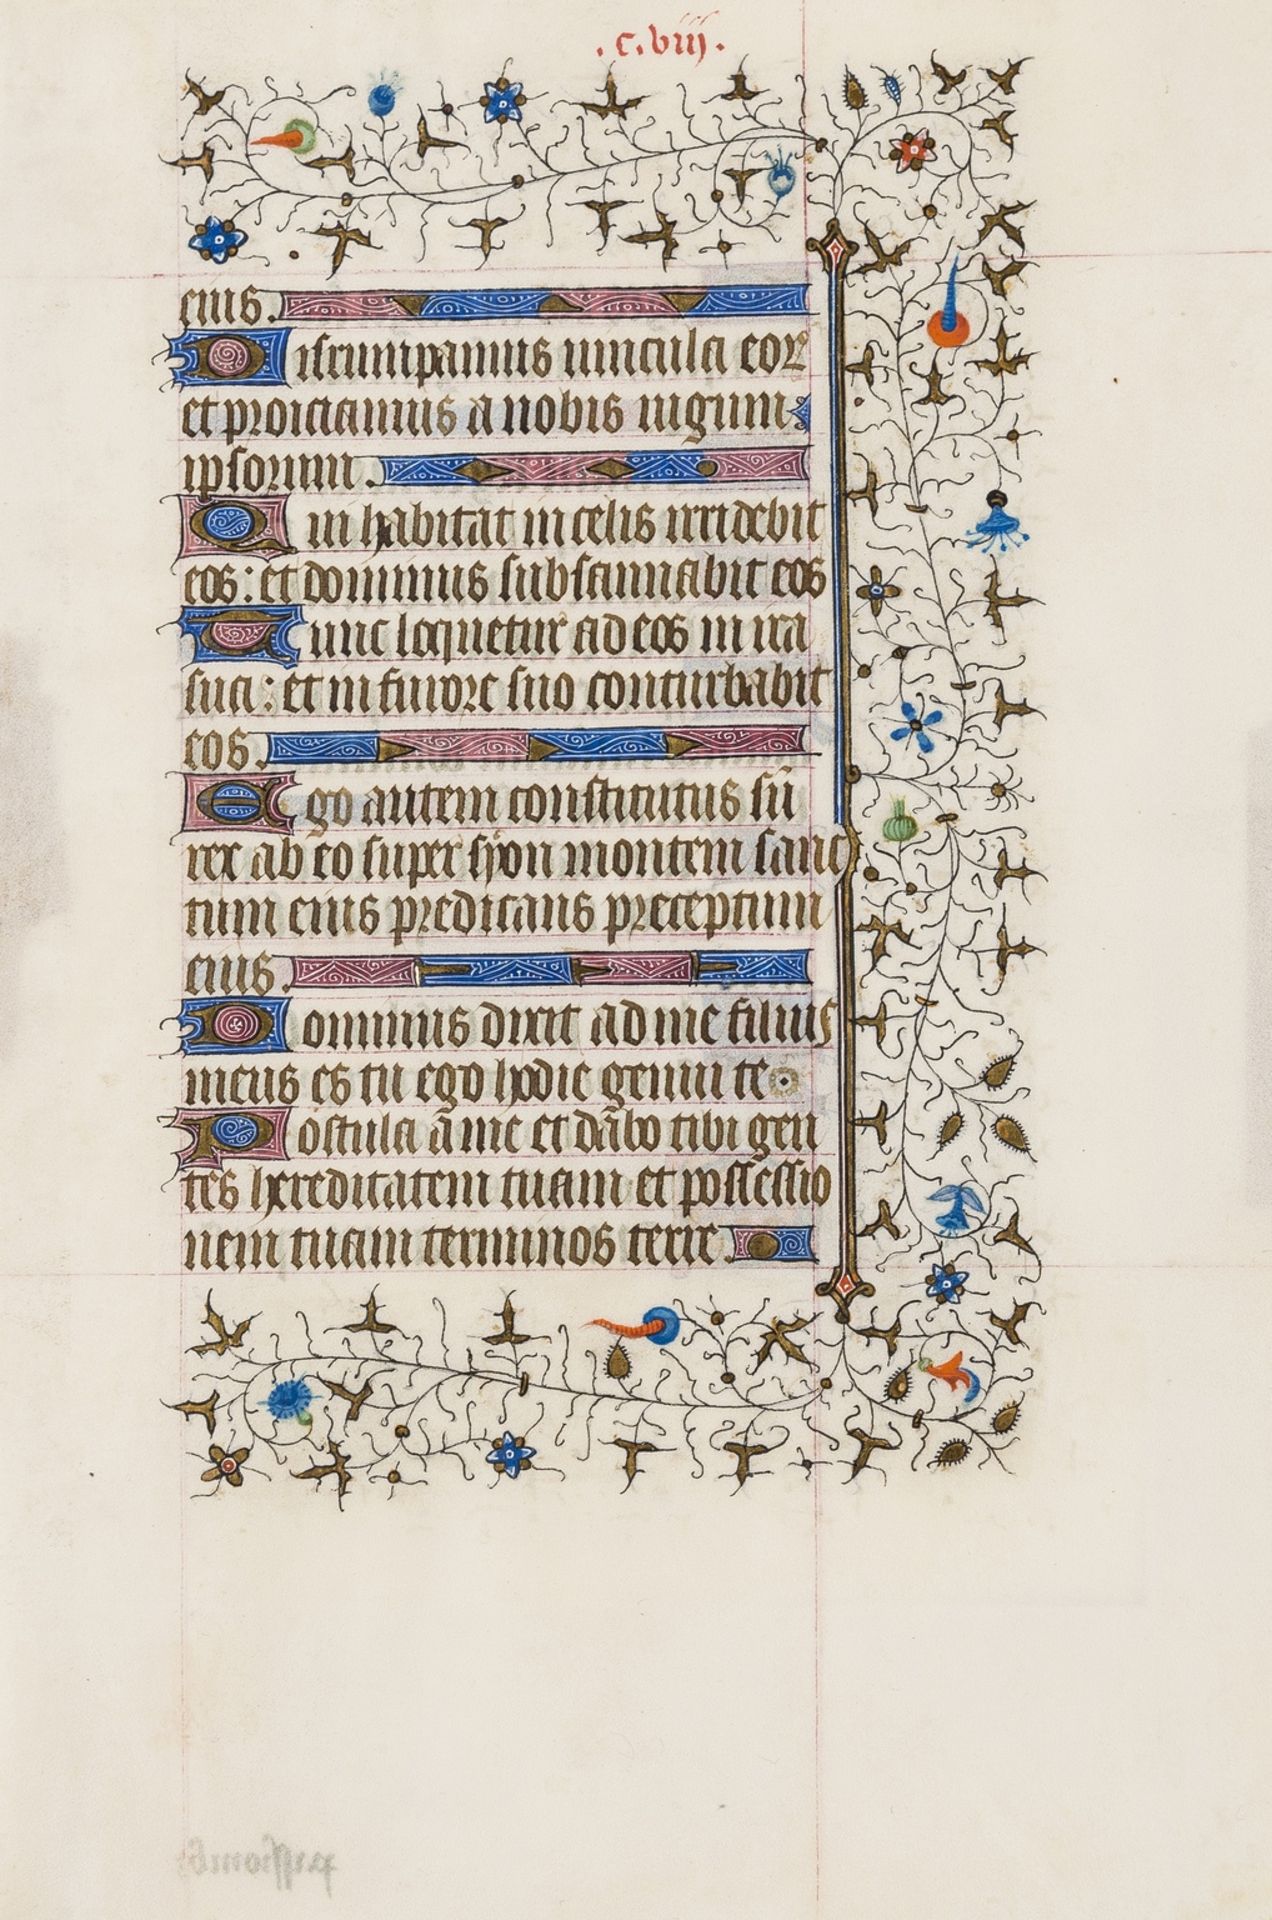 .c.viii.
eius.
Disrumpamus uincula eoꝝ
et proiciamus a nobis iugum
ipsorum.
Qui habitat in celis irridebit
eos: et dominus subsannabit eos
Tunc loquetur ad eos in ira
sua: et in furore suo conturbabit
eos.
Ego autem constitutus sū
rex ab eo super syon montem sanc
tum eius predicans preceptum
eius.
Dominus dixit ad me filius
meus es tu ego hodie genui te
Postula a me et dabo tibi gen
tes hereditatem tuam et possessio
nem tuam terminos terre.